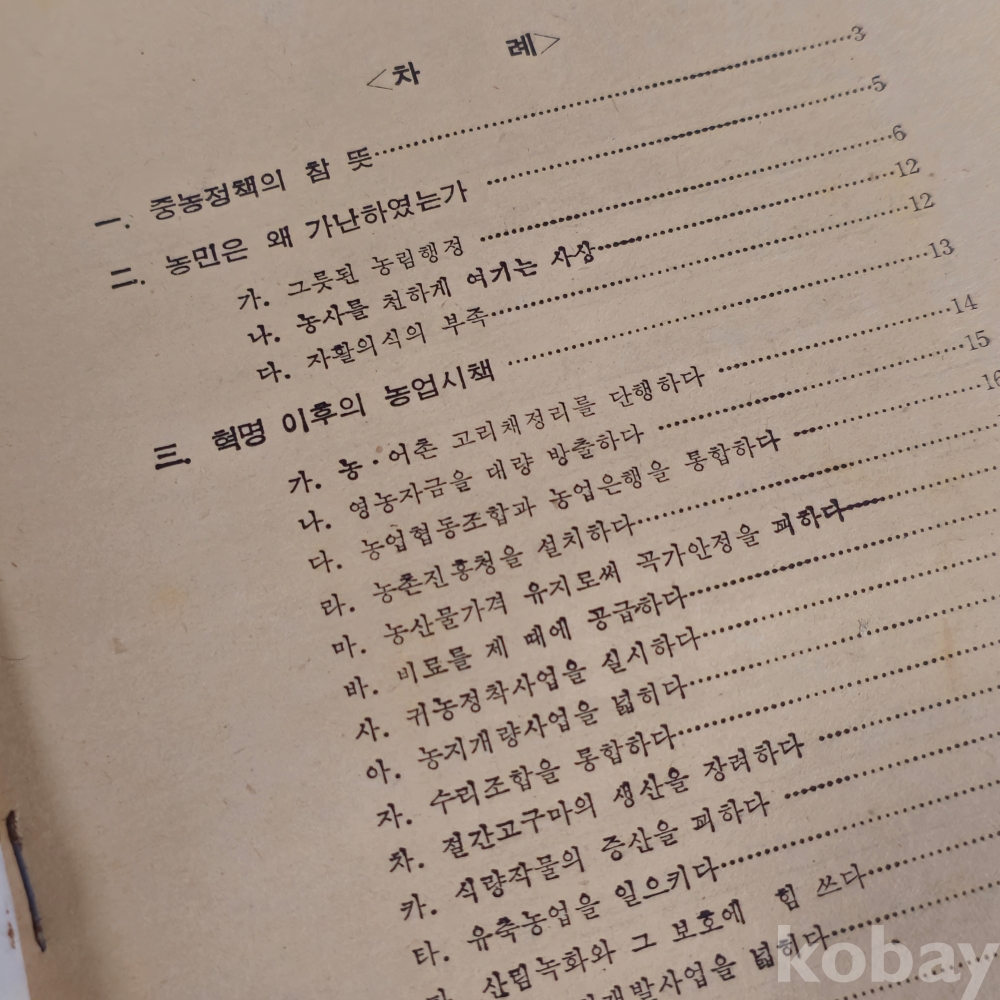 <차 례>
一. 중농정책의 참 뜻 3
二. 농민은 왜 가난하였는가 5
가. 그릇된 농림행정 6
나. 농사를 천하게 여기는 사상 12
다. 자활의식의 부족 12
三. 혁명 이후의 농업시책 13
가. 농·어촌 고리채정리를 단행하다 14
나. 영농자금을 대량 방출하다 15
다. 농업협동조합과 농업은행을 통합하다 16
라. 농촌진흥청을 설치하다
마. 농산물가격 유지로써 곡가안정을 꾀하다
바. 비료를 제 때에 공급하다
사. 귀농정착사업을 실시하다
아. 농지개량사업을 넓히다
자. 수리조합을 통합하다
차. 절간고구마의 생산을 장려하다
카. 식량작물의 증산을 꾀하다
타. 유축농업을 일으키다
파. 산림녹화와 그 보호에 힘 쓰다
개발사업을 넓히다
kobay